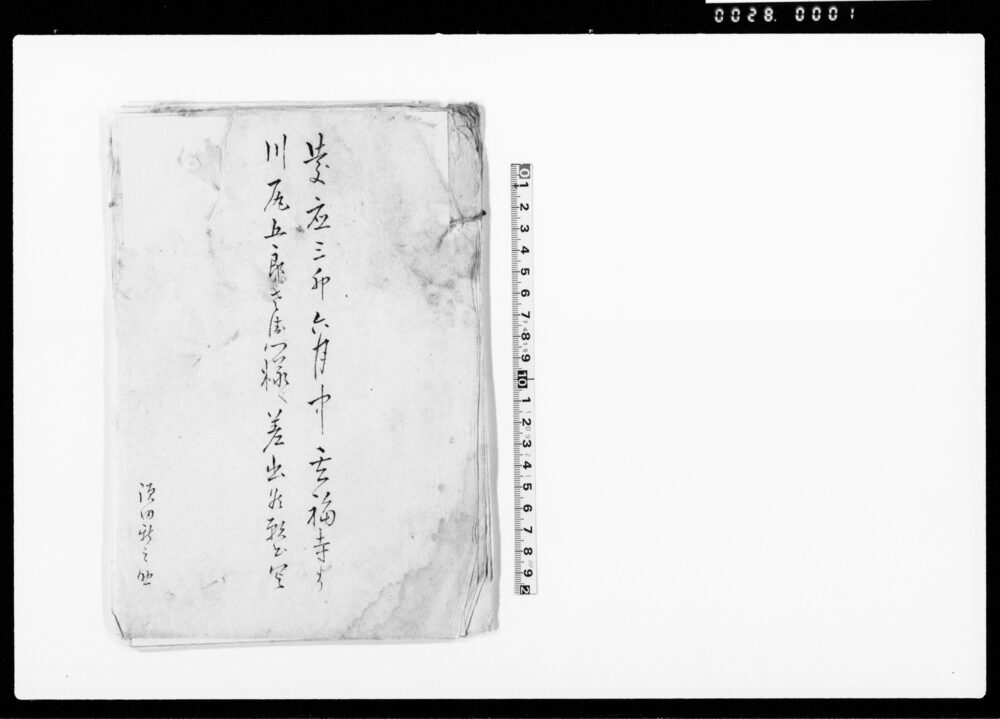 0028.0001
慶應三卯六月中 福寺ゟ
川尻五郎左衛門様へ差出候願書写
須田新之助
0 1 2 3 4 5 6 7 8 9 10 1 2 3 4 5 6 7 8 9 2